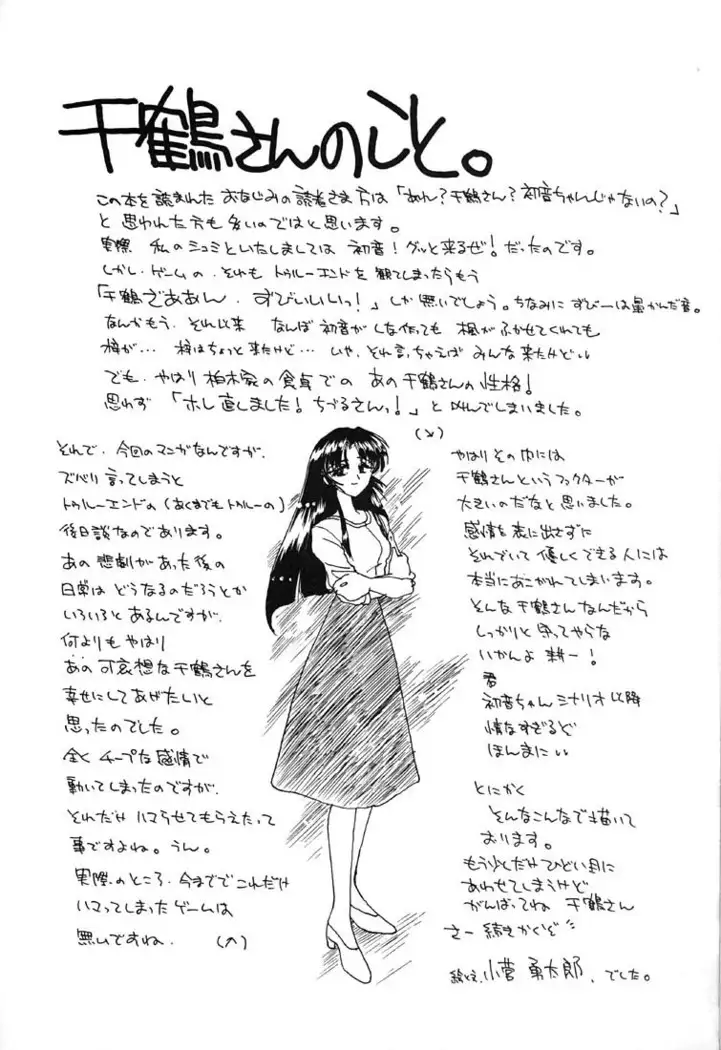 千鶴さんのこと。
この本を読まれた おなじみの読者さま方は「あれ？千鶴さん？初音ちゃんじゃないの？」
と 思われた方も 多いのではと思います。
実際 私のシュミといたしましては 初音！グッと来るぜ！だったのです。
しかし、ゲームの、それも トゥルーエンドを 観てしまったらもう
「千鶴ざああん、ずびいいいっ！」しか無いでしょう。ちなみに ずびーは鼻かんだ音。
なんかもう、それ以来 なんぼ 初音が しな作っても 楓が ふかせてくれても
梓が… 梓はちょっと来たけど… いや、それ言っちゃえば みんな来たけどぃぃ
でも、やはり 柏木家の食卓での あの千鶴さんの性格！
思わず 「ホレ直しました！ちづるさんっ！」と叫んでしまいました。
それで、今回のマンガなんですが、
ズバリ言ってしまうと
トゥルーエンドの（あくまでもトゥルーの）
後日談なのであります。
あの悲劇があった後の
日常はどうなるのだろうとか
いろいろとあるんですが、
何よりもやはり
あの可哀想な千鶴さんを
幸せにしてあげたいと
思ったのでした。
全くチープな感情で
動いてしまったのですが、
それだけハマらせてもらえたって
事ですよね。うん。
実際のところ、今まででこれだけ
ハマってしまったゲームは
無いですね。
やはりその中には
千鶴さんというファクターが
大きいのだなと思いました。
感情を表に出さずに
それでいて優しくできる人には
本当にあこがれてしまいます。
そんな千鶴さんなんだから
しっかりと守ってやらな
いかんよ 耕一！
君
初音ちゃんシナリオ以降
情なすぎるど
ほんまにぃぃ
とにかく
そんなこんなで描いて
おります。
もう少しだけひどい目に
あわせてしまうけど
がんばってね 千鶴さん
さー続きかくぞ
小菅 勇太郎、でした。